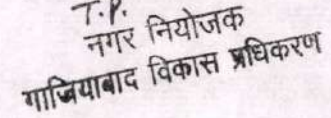 T.P.
नगर नियोजक
गाजियाबाद विकास प्रधिकरण